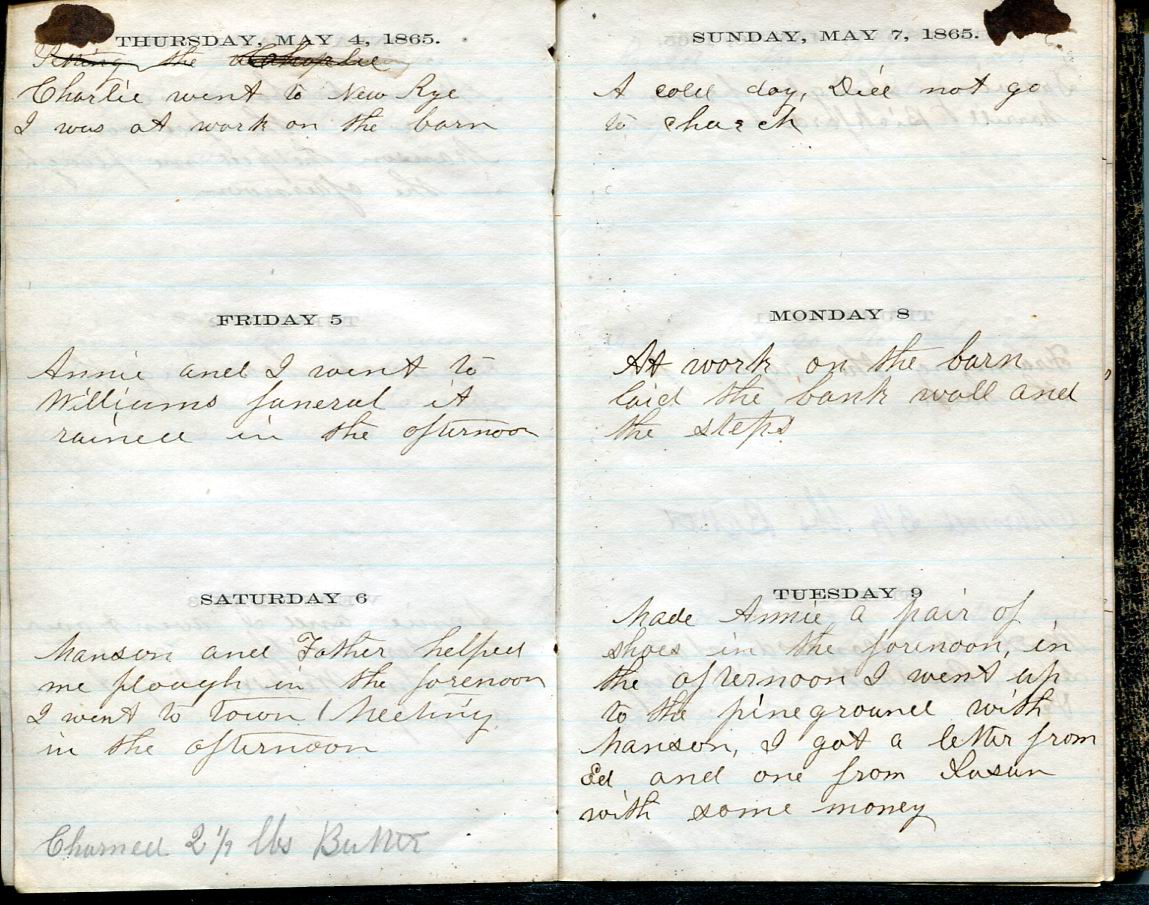 THURSDAY, MAY 4, 1865.
the
Charlie went to New Rye
I was at work on the barn
FRIDAY 5
Annie and I went to
Williams funeral it
rained in the afternoon
SATURDAY 6
Manson and Father helped
me plough in the forenoon
I went to town Meeting
in the afternoon
Churned 2 1/2 lbs Butter
SUNDAY, MAY 7, 1865.
A cold day, Did not go
to church
MONDAY 8
At work on the barn
laid the bank wall and
the steps
TUESDAY 9
Made Annie a pair of
shoes in the forenoon, in
the afternoon I went up
to the pineground with
Manson, I got a letter from
Ed and one from Susan
with some money